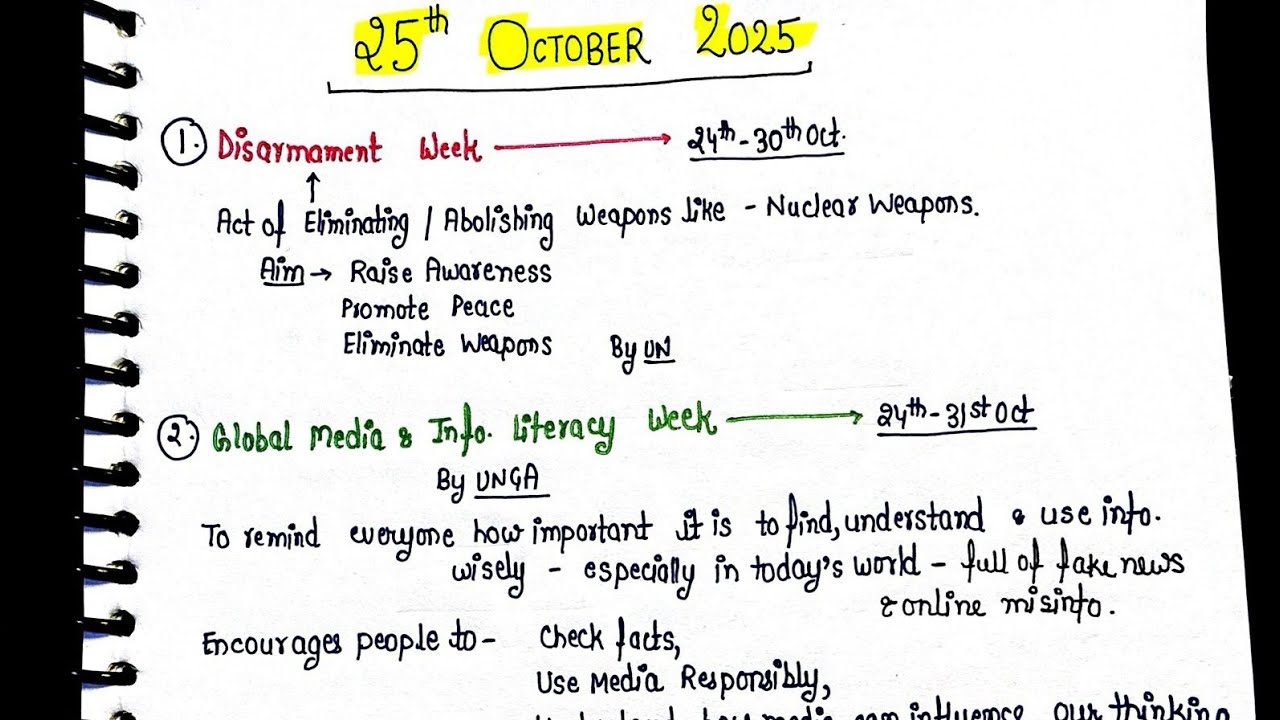 25th October 2025
1. Disarmament Week → 24th - 30th Oct.
↑
Act of Eliminating / Abolishing Weapons like - Nuclear Weapons.
Aim → Raise Awareness
Promote Peace
Eliminate Weapons By UN
2. Global Media & Info. Literacy Week → 24th - 31st Oct
By UNGA
To remind everyone how important it is to find, understand & use info.
wisely - especially in today's world - full of fake news
& online misinfo.
Encourages people to - Check facts,
Use Media Responsibly,
Understand how media can influence our thinking